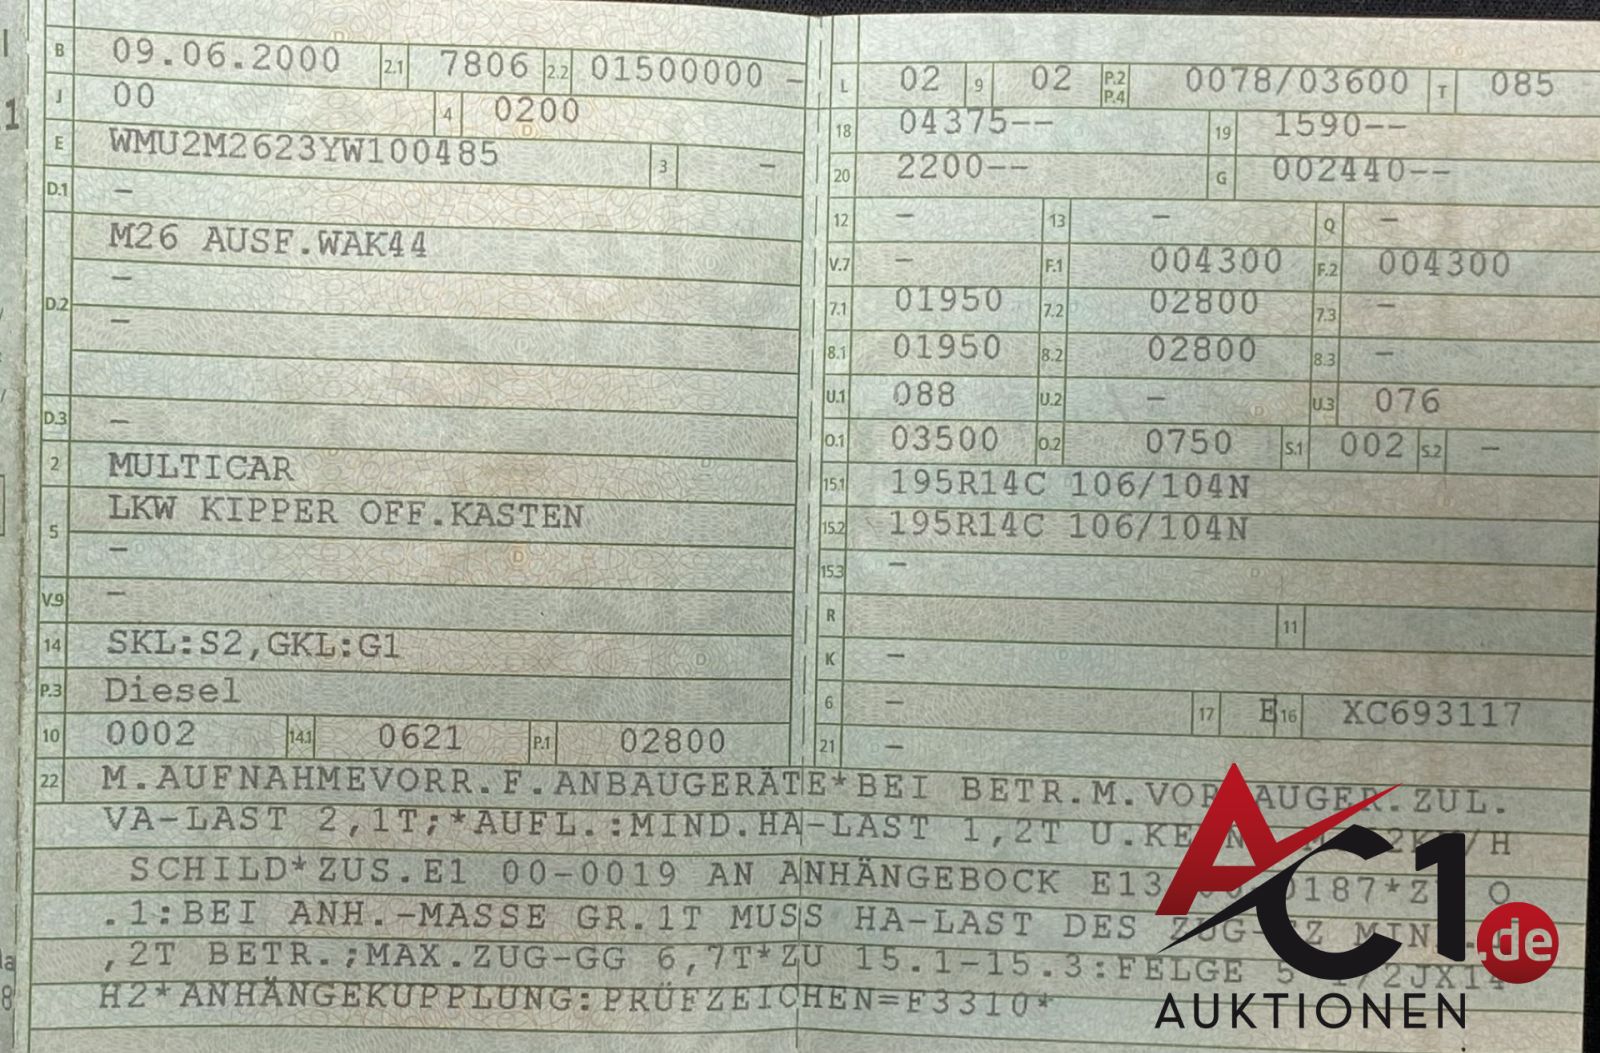 B 09.06.2000 2.1 7806 2.2 01500000 –
J 00 4 0200
E WMU2M2623YW100485 3 –
D.1 –
M26 AUSF.WAK44
–
D.2 –
D.3 –
2 MULTICAR
LKW KIPPER OFF.KASTEN
5 –
V.9 –
14 SKL:S2,GKL:G1
P.3 Diesel
10 0002 14.1 0621 P.1 02800
L 02 9 02 P.2 P.4 0078/03600 T 085
18 04375-- 19 1590--
20 2200-- G 002440--
12 – 13 – Q –
V.7 – F.1 004300 F.2 004300
7.1 01950 7.2 02800 7.3 –
8.1 01950 8.2 02800 8.3 –
U.1 088 U.2 – U.3 076
O.1 03500 O.2 0750 S.1 002 S.2 –
15.1 195R14C 106/104N
15.2 195R14C 106/104N
15.3 –
R 11
K –
6 – 17 E 16 XC693117
21 –
22 M.AUFNAHMEVORR.F.ANBAUGERÄTE*BEI BETR.M. ZUL.
VA-LAST 2,1T;*AUFL.:MIND.HA-LAST 1,2T /H
SCHILD*ZUS.E1 00-0019 AN ANHÄNGEBOCK O
.1:BEI ANH.-MASSE GR.1T MUSS HA-LAST DES
,2T BETR.;MAX.ZUG-GG 6,7T*ZU 15.1-15.3:FELGE 5
H2*ANHÄNGEKUPPLUNG:PRÜFZEICHEN=F3310*
AC1.de
AUKTIONEN